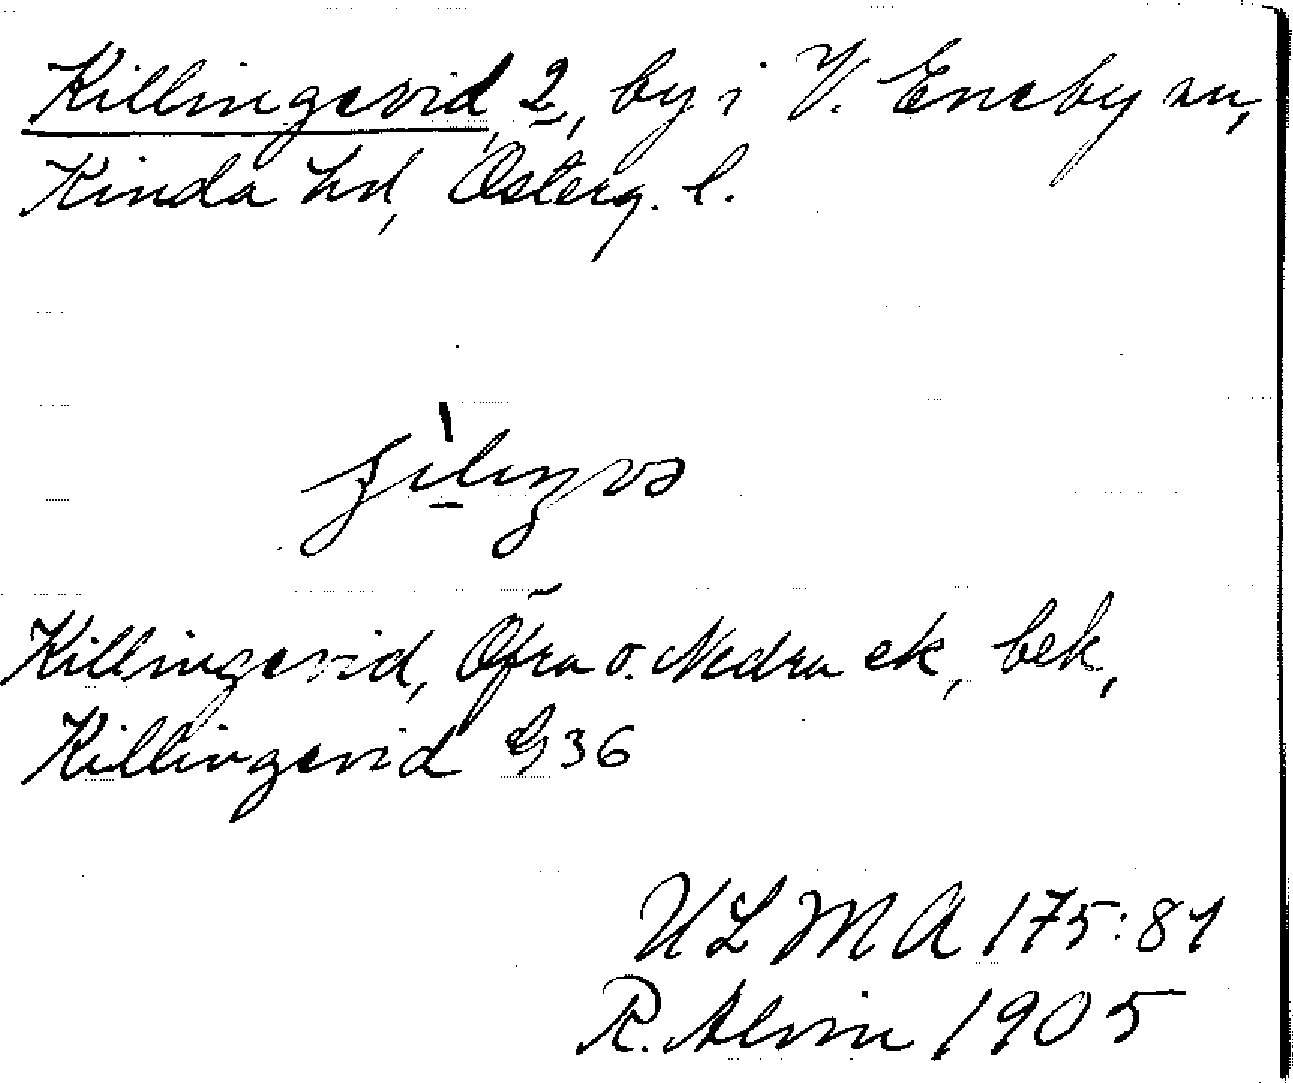 Killingevid, 2, by i V. Eneby sn,
Kinda hd, Österg. l.
Killingevid, Öfra o. Nedra ek, bek,
Killingevid G 36
ULMA 175:81
R. Alvin 1905